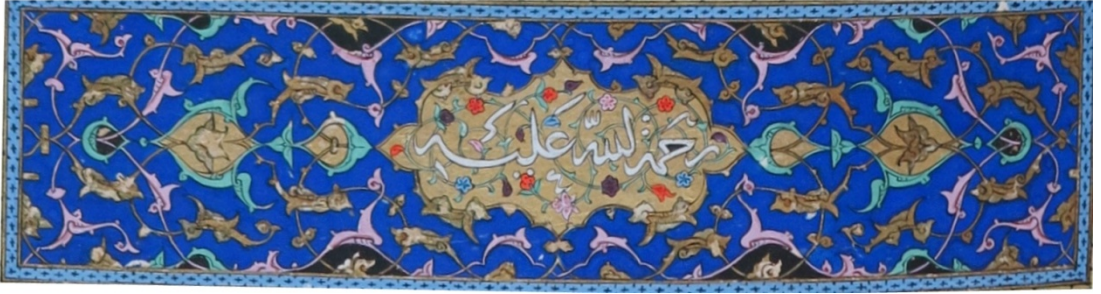 رحمة الله عليه